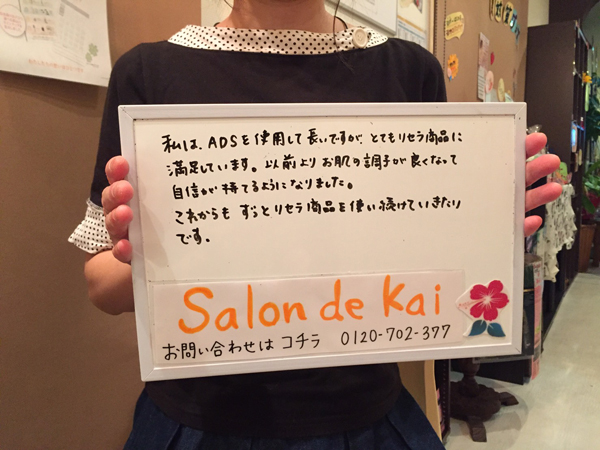 私は、ADSを使用して長いですが、とてもリセラ商品に
満足しています。以前よりお肌の調子が良くなって
自信が持てるようになりました。
これからもずっとリセラ商品を使い続けていきたい
です。
Salon de Kai
お問い合わせはコチラ 0120-702-377